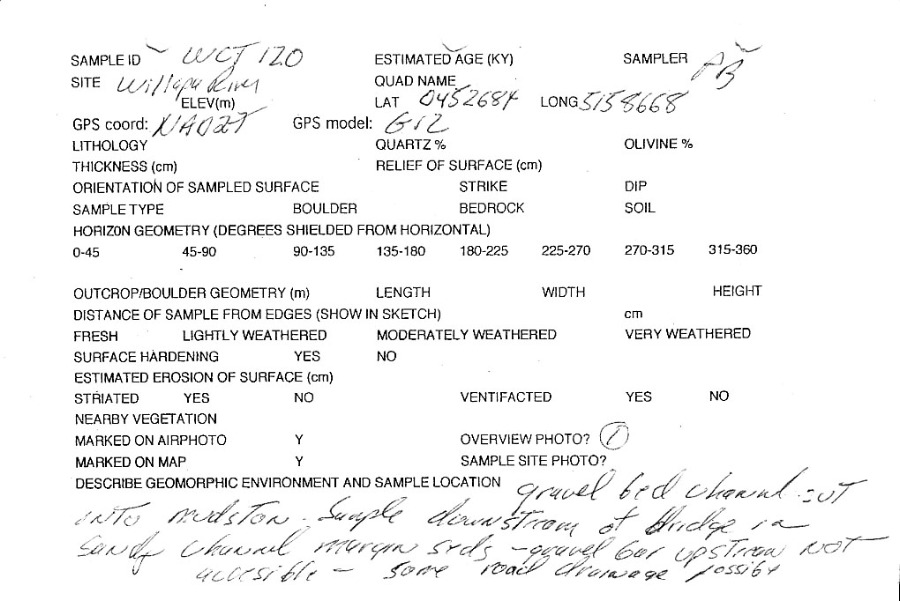 SAMPLE ID WCT 120 ESTIMATED AGE (KY) SAMPLER PB
SITE Willapa River QUAD NAME
ELEV(m) LAT 0452684 LONG 5158668
GPS coord: NAD27 GPS model: G12
LITHOLOGY QUARTZ % OLIVINE %
THICKNESS (cm) RELIEF OF SURFACE (cm)
ORIENTATION OF SAMPLED SURFACE STRIKE DIP
SAMPLE TYPE BOULDER BEDROCK SOIL
HORIZON GEOMETRY (DEGREES SHIELDED FROM HORIZONTAL)
0-45 45-90 90-135 135-180 180-225 225-270 270-315 315-360
OUTCROP/BOULDER GEOMETRY (m) LENGTH WIDTH HEIGHT
DISTANCE OF SAMPLE FROM EDGES (SHOW IN SKETCH) cm
FRESH LIGHTLY WEATHERED MODERATELY WEATHERED VERY WEATHERED
SURFACE HARDENING YES NO
ESTIMATED EROSION OF SURFACE (cm)
STRIATED YES NO VENTIFACTED YES NO
NEARBY VEGETATION
MARKED ON AIRPHOTO Y OVERVIEW PHOTO? 1
MARKED ON MAP Y SAMPLE SITE PHOTO?
DESCRIBE GEOMORPHIC ENVIRONMENT AND SAMPLE LOCATION gravel bed channel cut
INTO mudston. Sample downstream of bridge in
Sandy channel margin seds - gravel bar upstream NOT
accesible - some road drainage possible